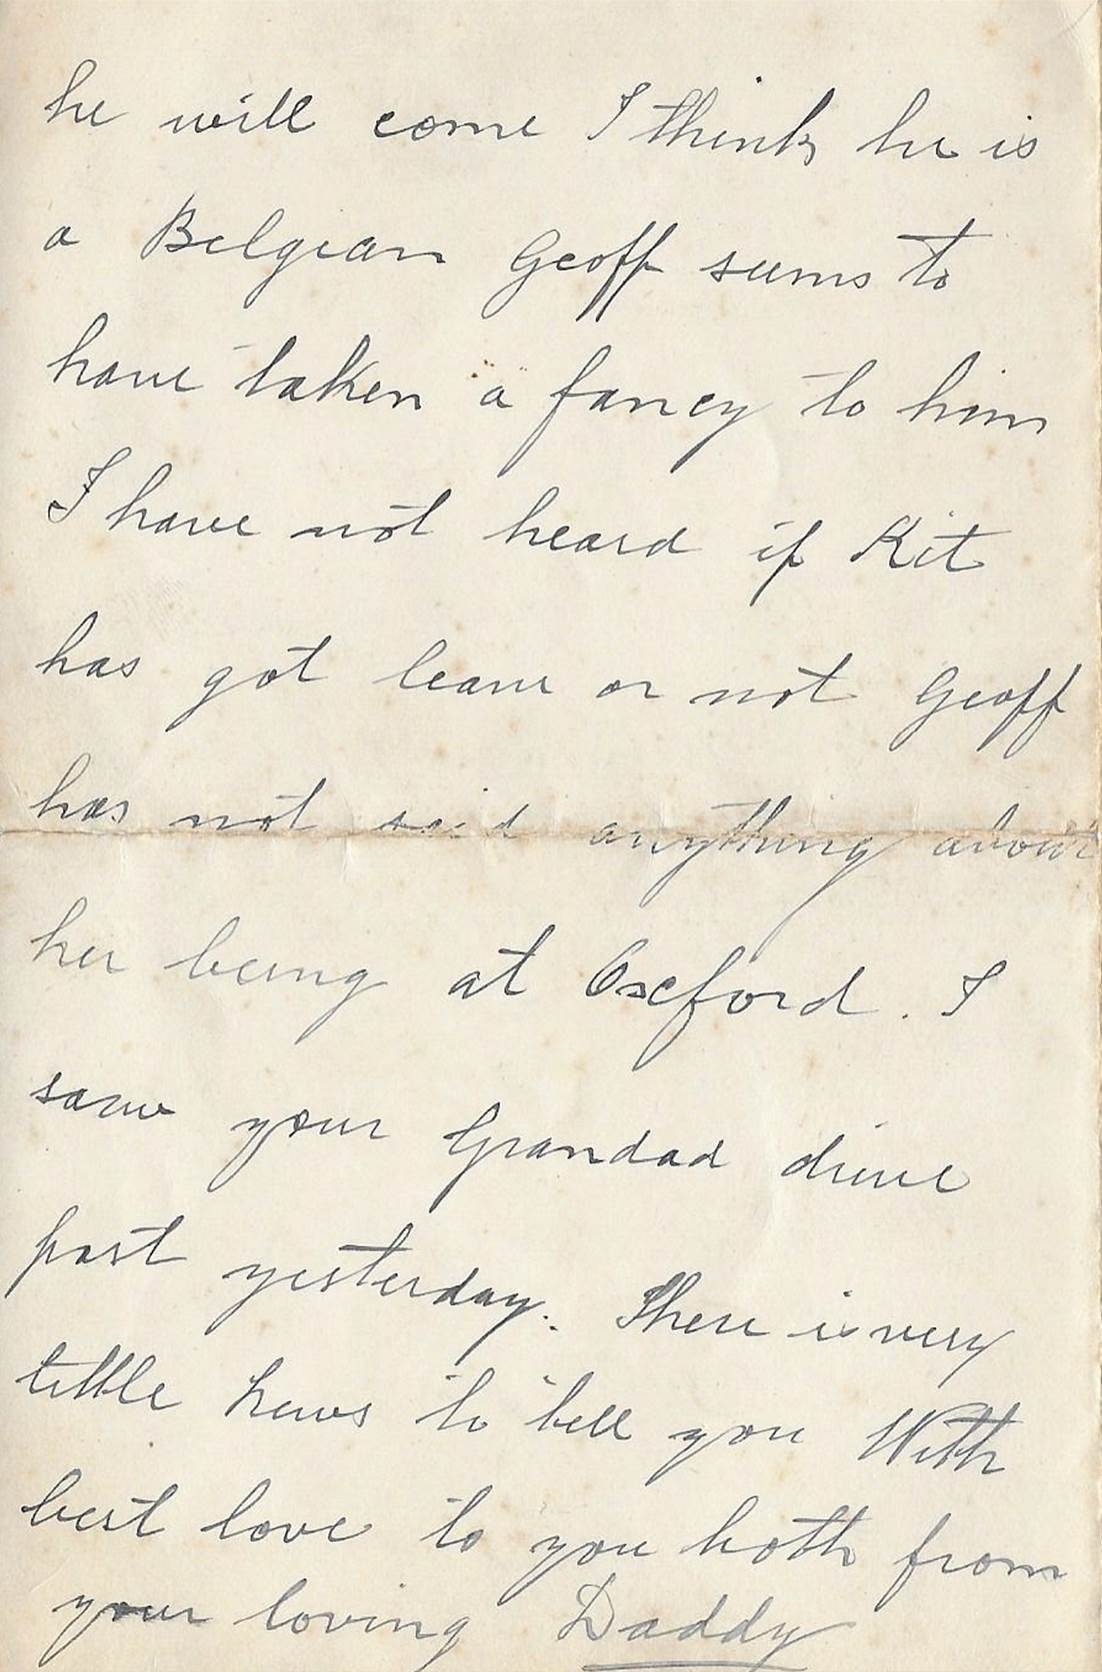 he will come I think he is
a Belgian Geoff seems to
have taken a fancy to him
I have not heard if Kit
has got leave or not Geoff
has not said anything about
her being at Oxford. I
saw your Grandad drive
past yesterday. There is very
little news to tell you With
best love to you both from
your loving Daddy